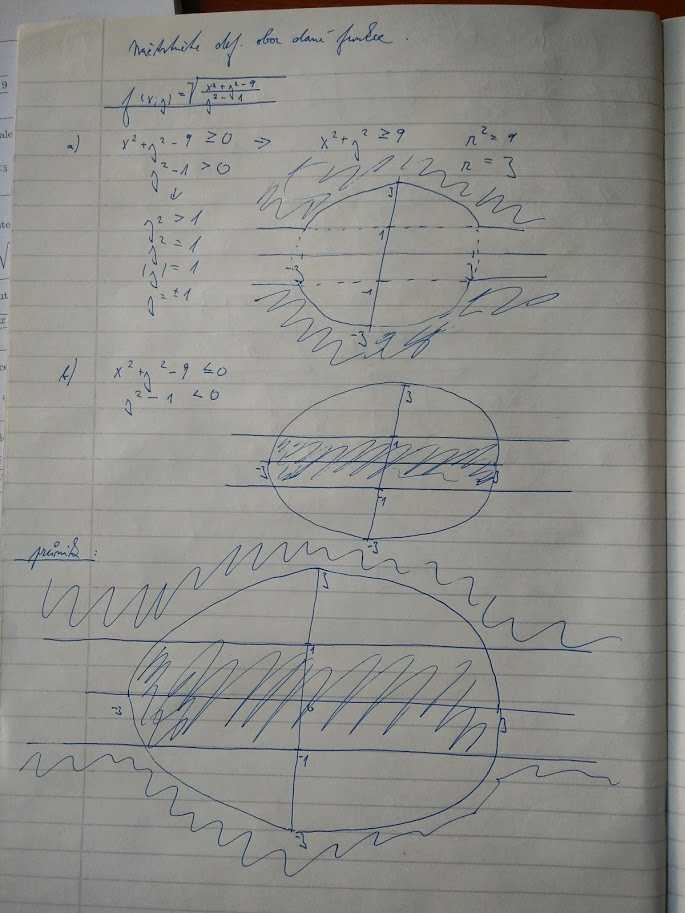 načrtněte def. obor dané funkce.
f(x,y) = √((x² + y² - 9)/(y² - 1))
a) x² + y² - 9 ≥ 0 => x² + y² ≥ 9 r² = 9
y² - 1 > 0 r = 3
↓
y² > 1
y² = 1
|y| = 1
y = ±1
3
1
-3 3
-1
-3
b) x² + y² - 9 ≤ 0
y² - 1 < 0
3
1
-3 3
-1
-3
průnik:
3
1
-3 0 3
-1
-3